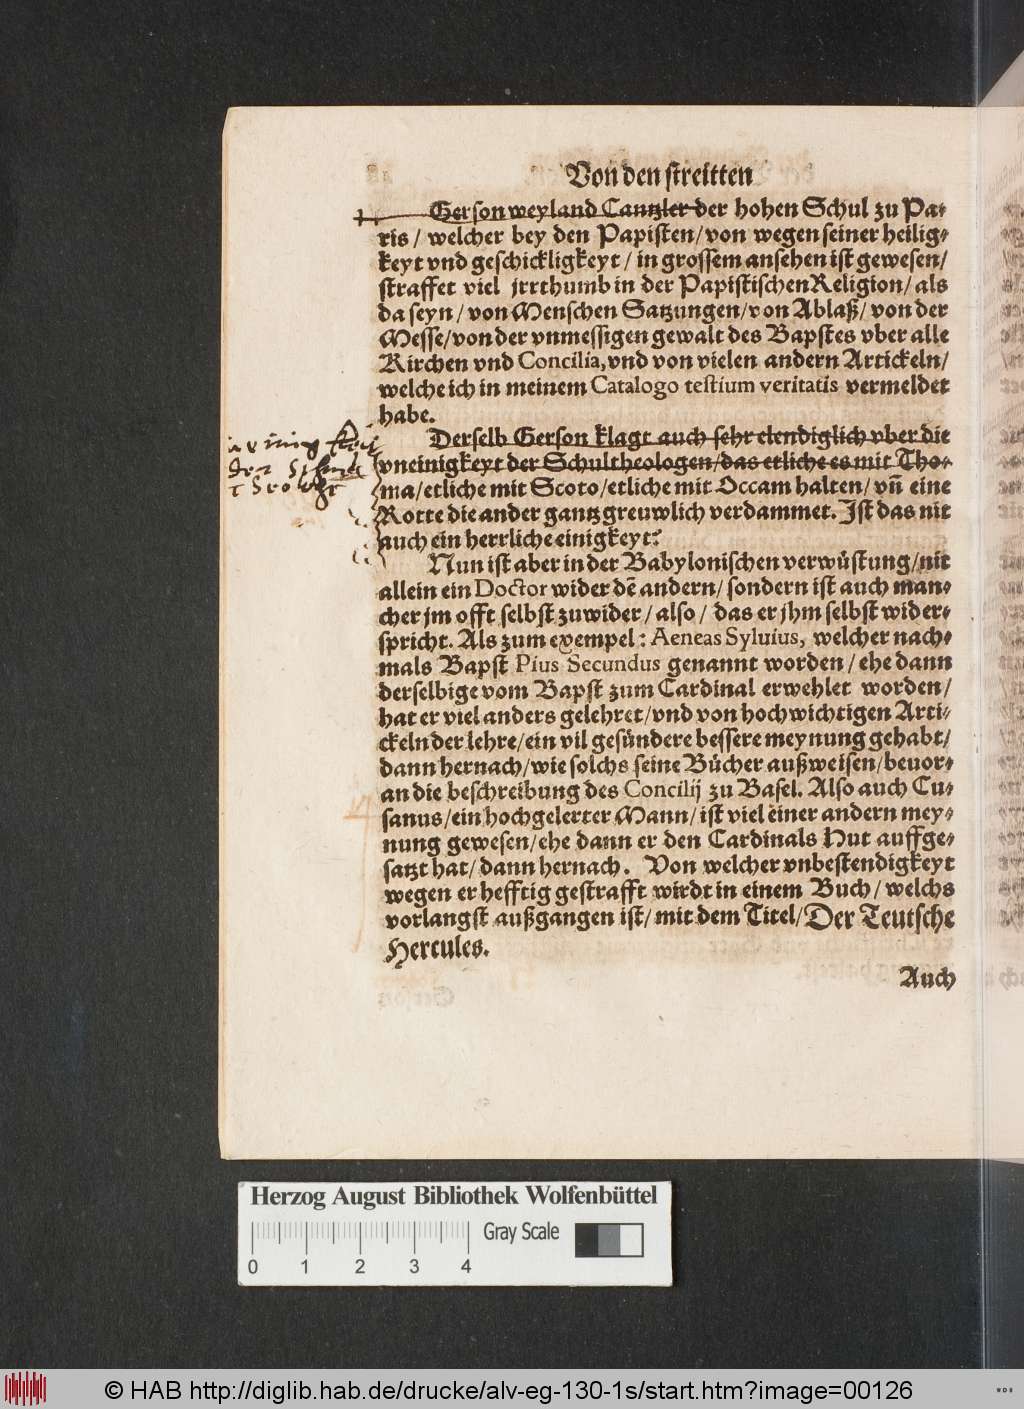 Von den streitten
Gerson weyland Cantzler der hohen Schul zu Pa-
ris / welcher bey den Papisten / von wegen seiner heilig-
keyt vnd geschickligkeyt / in grossem ansehen ist gewesen /
straffet viel jrrthumb in der Papistischen Religion / als
da seyn / von Menschen Satzungen / von Ablaß / von der
Messe / von der vnmessigen gewalt des Bapstes vber alle
Kirchen vnd Concilia, vnd von vielen andern Artickeln /
welche ich in meinem Catalogo testium veritatis vermeldet
habe.
Derselb Gerson klagt auch sehr elendiglich vber die
vneinigkeyt der Schultheologen / das etliche es mit Tho-
ma / etliche mit Scoto / etliche mit Occam halten / vñ eine
Rotte die ander gantz greuwlich verdammet. Jst das nit
auch ein herrliche einigkeyt?
Nun ist aber in der Babylonischen verwüstung / nit
allein ein Doctor wider dē andern / sondern ist auch man-
cher jm offt selbst zuwider / also / das er jhm selbst wider-
spricht. Als zum exempel : Aeneas Syluius, welcher nach-
mals Bapst Pius Secundus genannt worden / ehe dann
derselbige vom Bapst zum Cardinal erwehlet worden /
hat er viel anders gelehret / vnd von hochwichtigen Arti-
ckeln der lehre / ein vil gesündere bessere meynung gehabt /
dann hernach / wie solchs seine Bücher außweisen / beuor-
an die beschreibung des Concilij zu Basel. Also auch Cu-
sanus / ein hochgelerter Mann / ist viel einer andern mey-
nung gewesen / ehe dann er den Cardinals Hut auffge-
satzt hat / dann hernach. Von welcher vnbestendigkeyt
wegen er hefftig gestrafft wirdt in einem Buch / welchs
vorlangst außgangen ist / mit dem Titel / Der Teutsche
Hercules.
Auch
Herzog August Bibliothek Wolfenbüttel
Gray Scale
0 1 2 3 4
© HAB http://diglib.hab.de/drucke/alv-eg-130-1s/start.htm?image=00126